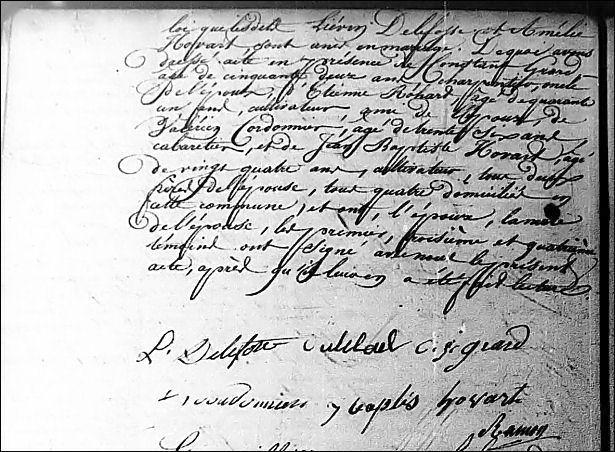 loi que lesdits Liévin Delefosse et Amélie
Hovart, sont unis en mariage. De quoi avons
dressé acte en présence de Constant Gérard
âgé de cinquante deux ans charpentier, oncle
de l'époux, d'Etienne Rohard âgé de quarante
un ans, cultivateur, ami de l'époux, de
Valérien Cordonnier, âgé de trente six ans
cabaretier, et de Jean Baptiste Hovart, âgé
de vingt quatre ans, cultivateur, tous deux
frères de l'épouse, tous quatre domiciliés en
cette commune, et ont, l'époux, la mère
de l'épouse, les premier, troisième et quatrième
témoins ont signé avec nous le présent
acte, après qu'il leur en a été fait lecture.
L. Delefosse C gerard
Cordonnier j baptis hovart